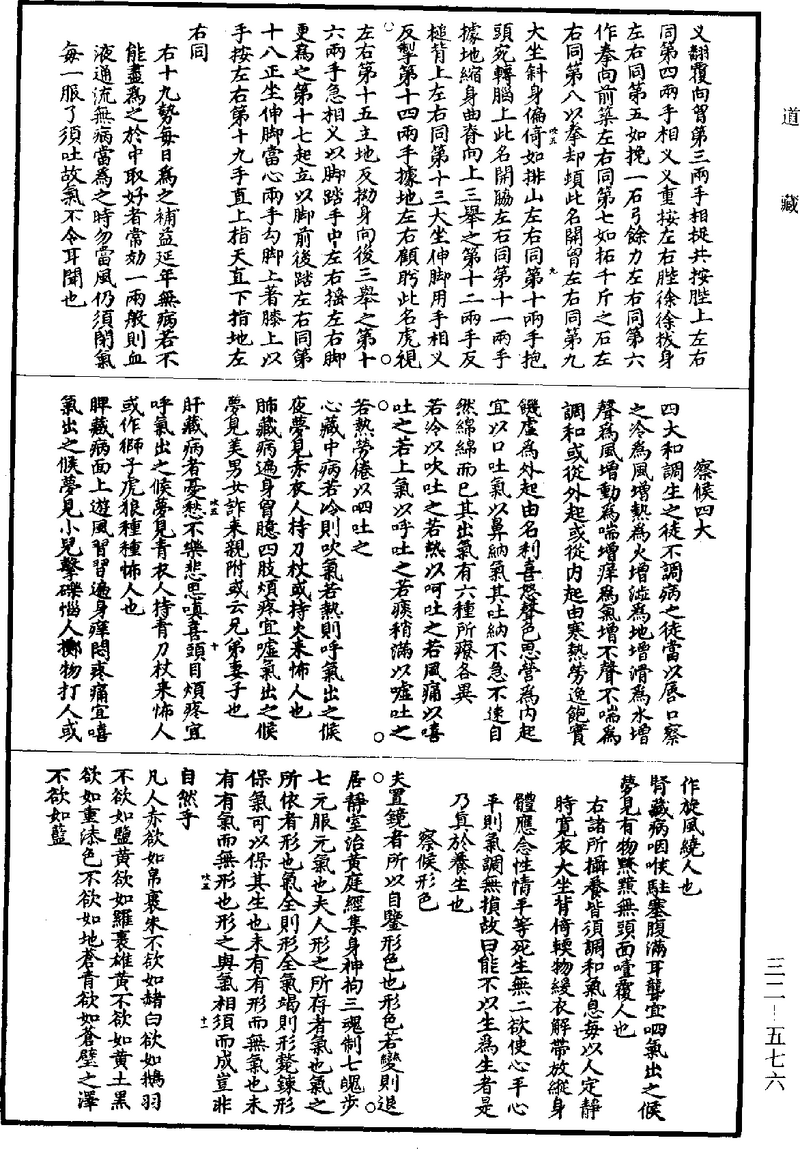 道藏
又翻覆向胷第三兩手相捉共按䏶上左右
同第四兩手相叉叉重按左右䏶徐徐捩身
左右同第五如挽一石弓餘力左右同第六
作拳向前築左右同第七如拓千斤之石左
右同第八以拳却頓此名開胷左右同第九
大坐斜身偏倚如排山左右同第十兩手抱
頭宛轉腦上此名開脇左右同第十一兩手
據地縮身曲脊向上三舉之第十二兩手反
槌背上左右同第十三大坐伸脚用手相叉
反掣第十四兩手據地左右顧肹此名虎視
左右第十五主地反拗身向後三舉之第十
六兩手急相叉以脚踏手中左右搖左右脚
更爲之第十七起立以脚前後踏左右同第
十八正坐伸脚當心兩手勾脚上著膝上以
手按左右第十九手直上指天直下指地左
右同
右十九勢每日爲之補益延年無病若不
能盡爲之於中取好者常効一兩般則血
液通流無病當爲之時勿當風仍須閉氣
每一服了須吐故氣不令耳聞也
察候四大
四大和調生之徒不調病之徒當以唇口察
之冷爲風增熱爲火增澁爲地增滑爲水增
聲爲風增動爲喘增痒爲氣增不聲不喘爲
調和或從外起或從内起由寒熱勞逸飽實
饑虛爲外起由名利喜怒聲色思營爲内起
宜以口吐氣以鼻納氣其吐納不急不速自
然綿綿而已其出氣有六種所療各異
若冷以吹吐之若熱以呵吐之若風痛以嘻
吐之若上氣以呼吐之若痰稍滿以噓吐之
若熱勞倦以呬吐之
心藏中病若冷則吹氣若熱則呼氣出之候
夜夢見赤衣人持刀杖或持火来怖人也
肺藏病遍身胷臆四肢煩疼宜噓氣出之候
夢見美男女詐来親附或云兄弟妻子也
肝藏病者憂愁不樂悲思嗔喜頭目煩疼宜
呼氣出之候夢見青衣人持青刀杖来怖人
或作獅子虎狼種種怖人也
脾藏病面上遊風習習遍身痒悶疼痛宜嘻
氣出之候夢見小兒擊礫惱人擲物打人或
作旋風繞人也
腎藏病咽喉駐塞腹滿耳聾宜呬氣出之候
夢見有物黤黮無頭面噎覆人也
右諸所攝養皆須調和氣息每以人定静
時寬衣大坐背倚輭物緩衣解帶放縱身
體應念性情平等死生無二欲使心平心
平則氣調無損故曰能不以生爲生者是
乃真於養生也
察候形色
夫置鏡者所以自鑒形色也形色若變則退
居静室治黄庭經集身神拘三魂制七魄步
七元服元氣也夫人形之所存者氣也氣之
所依者形也氣全則形全氣竭則形斃鍊形
保氣可以保其生也未有有形而無氣也未
有有氣而無形也形之與氣相須而成豈非
自然乎
凡人赤欲如帛裹朱不欲如赭白欲如鵝羽
不欲如鹽黄欲如羅裹雄黄不欲如黄土黑
欲如重漆色不欲如地蒼青欲如蒼璧之澤
不欲如藍
三二—五七六